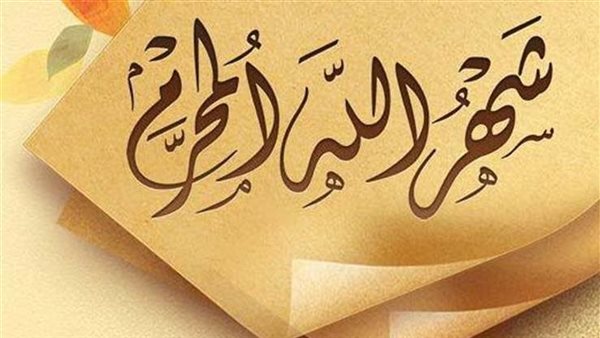 شَهْرُ اللَّهِ الْمُحَرَّم